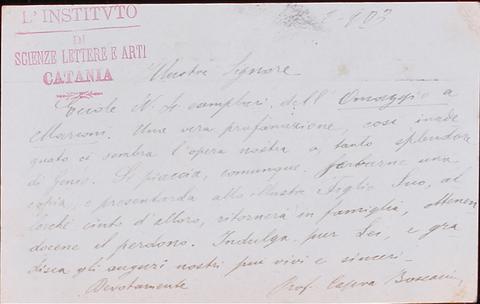 L'INSTITVTO
DI
SCIENZE LETTERE E ARTI
CATANIA
903
Illustre Signore
Eccole N. 4 esemplari dell'Omaggio a
Marconi. Una vera profanazione, così
ci sembra l'opera nostra a tanto splendore
di Genio. Le piaccia, comunque, serbarne una
copia, e presentarla allo Illustre Figlio Suo, al
lorchè cinto d'alloro, ritornerà in famiglia, ottenen
docene il perdono. Indulga pur Lei, e gra
disca gli auguri nostri più vivi e sinceri.
Devotamente
Prof.